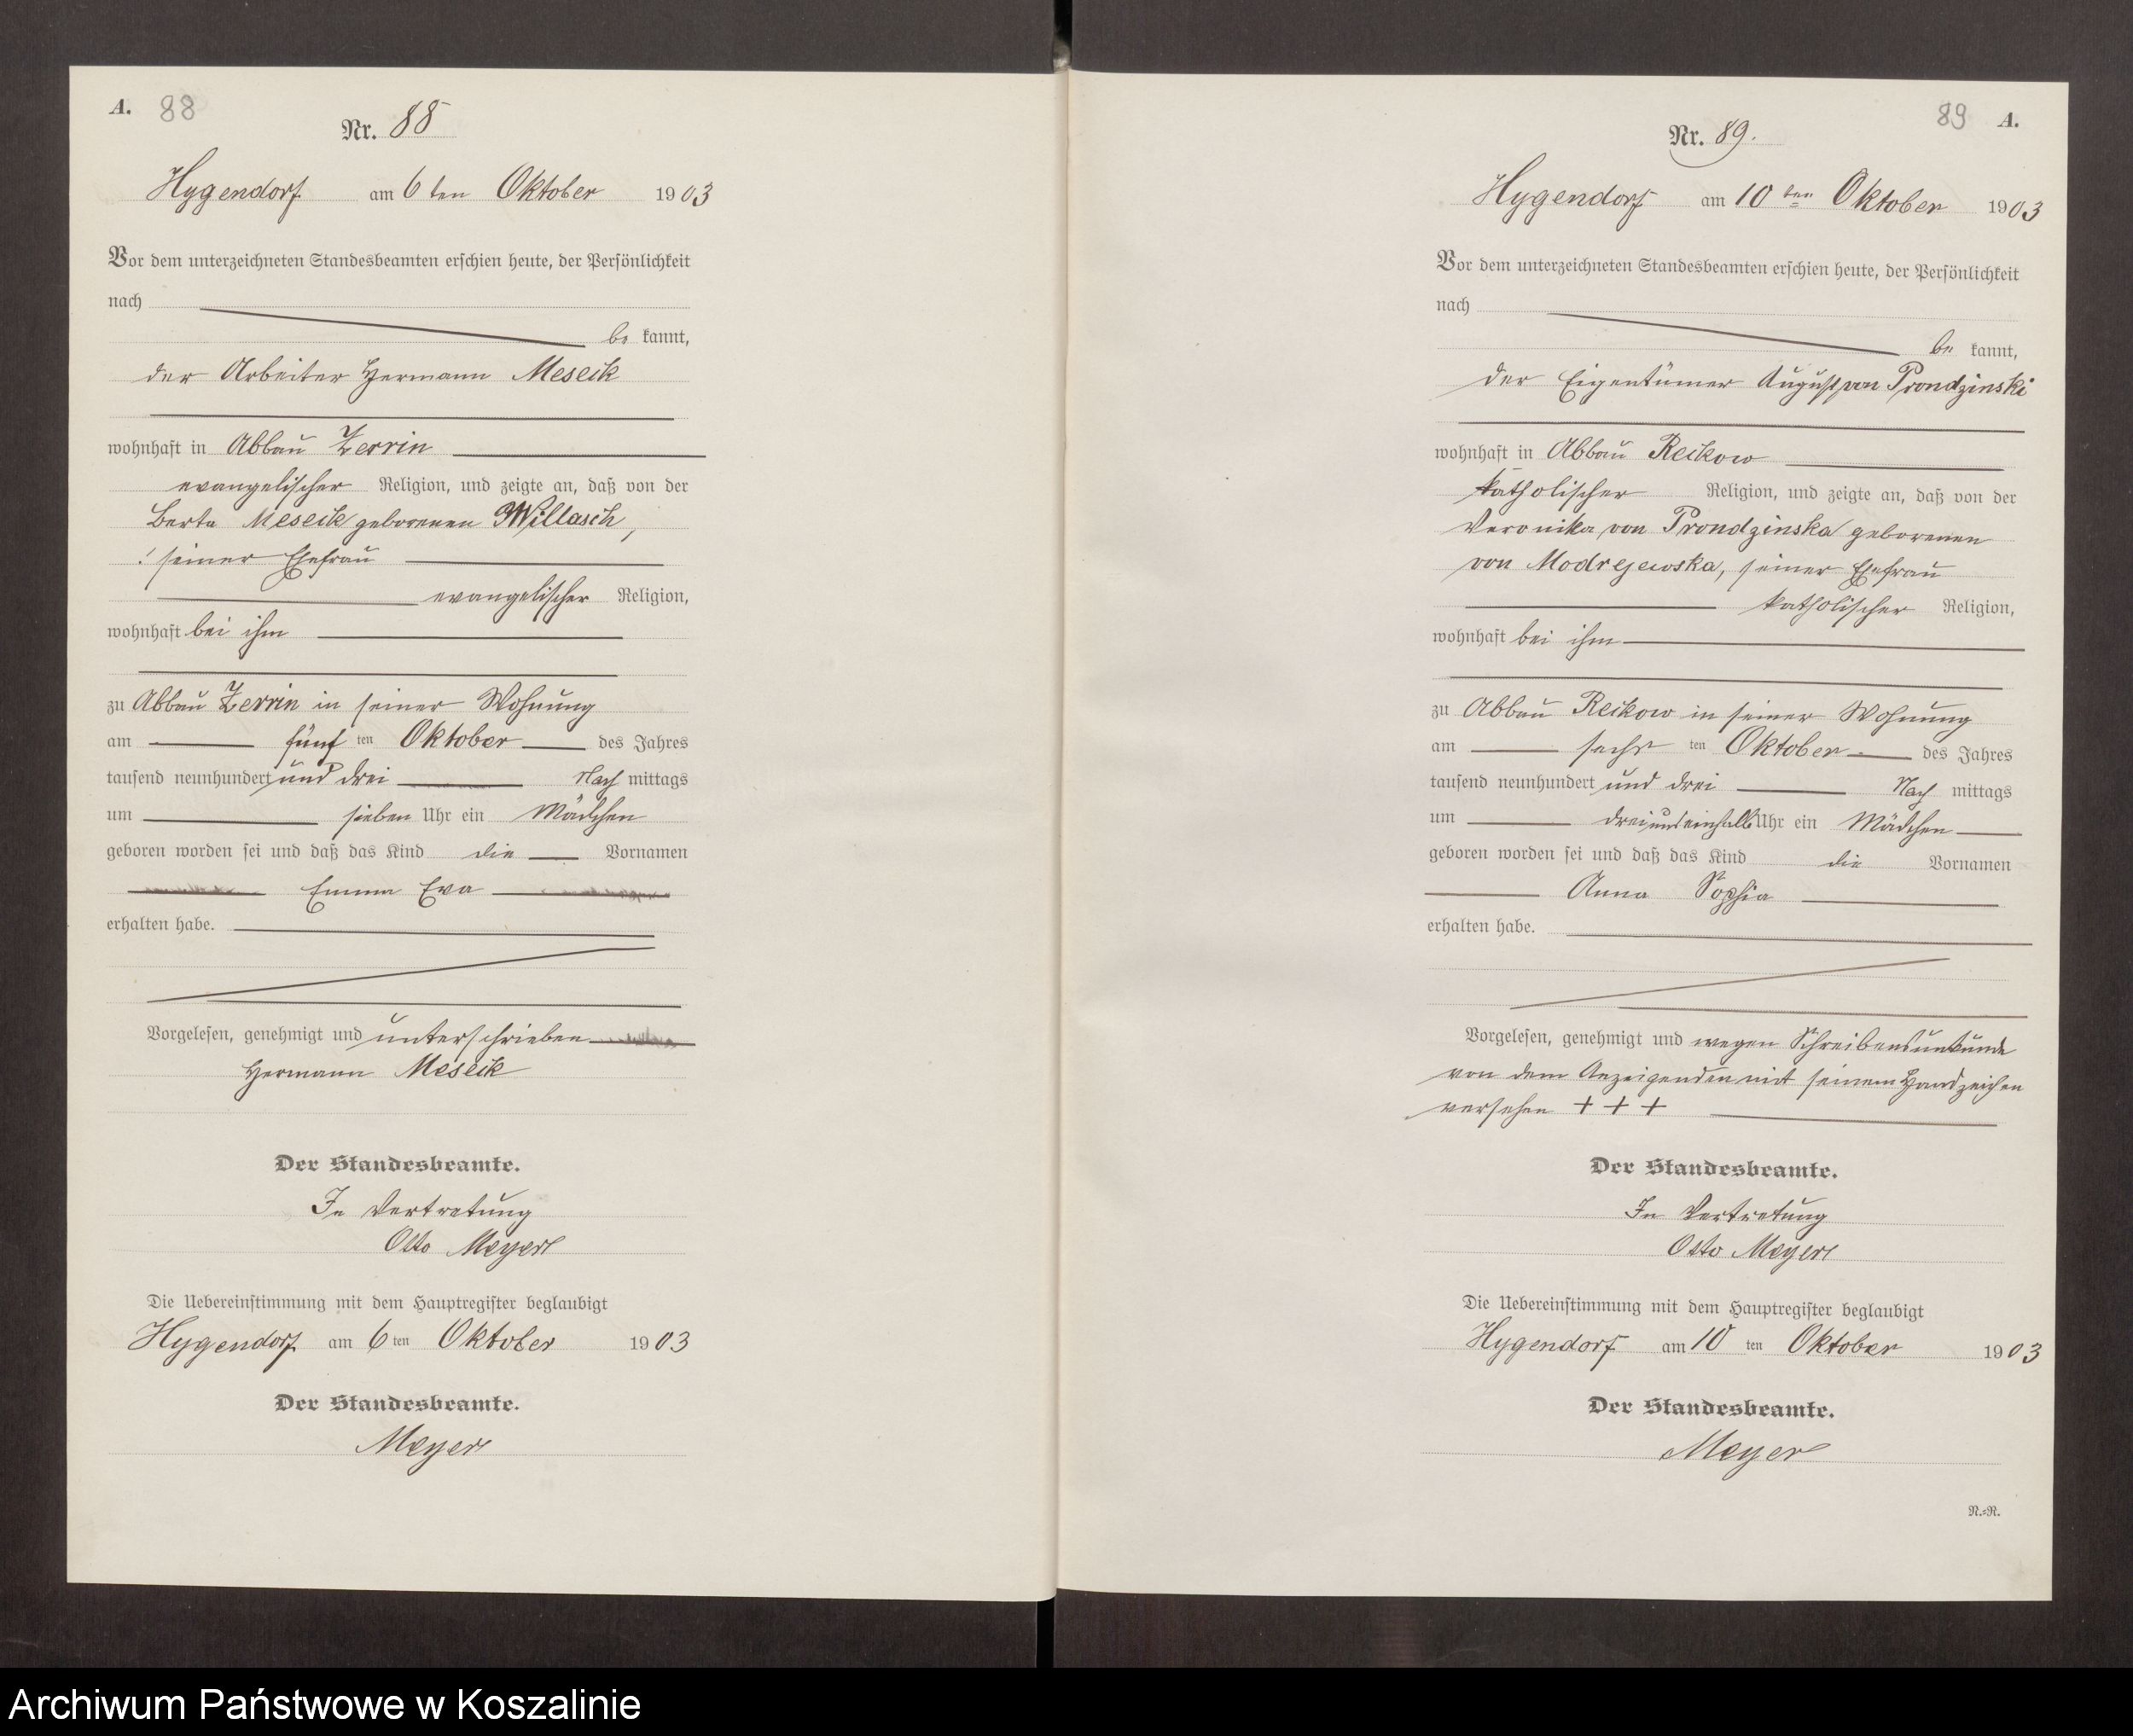 A. 88
Nr. 88
Hygendorf am 6 ten Oktober 1903
Vor dem unterzeichneten Standesbeamten erschien heute, der Persönlichkeit
nach
be kannt,
der Arbeiter Hermann Meseik
wohnhaft in Abbau Zerrin
evangelischer Religion, und zeigte an, daß von der
Berta Meseik geborenen Willasch,
seiner Ehefrau
evangelischer Religion,
wohnhaft bei ihm
zu Abbau Zerrin in seiner Wohnung
am fünf ten Oktober des Jahres
tausend neunhundert und drei Nach mittags
um sieben Uhr ein Mädchen
geboren worden sei und daß das Kind die Vornamen
Emma Eva
erhalten habe.
Vorgelesen, genehmigt und unterschrieben
Hermann Meseik
Der Standesbeamte.
In Vertretung
Otto Meyer
Die Uebereinstimmung mit dem Hauptregister beglaubigt
Hygendorf am 6 ten Oktober 1903
Der Standesbeamte.
Meyer
89 A.
Nr. 89.
Hygendorf am 10 ten Oktober 1903
Vor dem unterzeichneten Standesbeamten erschien heute, der Persönlichkeit
nach
be kannt,
der Eigentümer August von Prondzinski
wohnhaft in Abbau Reikow
katholischer Religion, und zeigte an, daß von der
Veronika von Prondzinska geborenen
von Modrejewska, seiner Ehefrau
katholischer Religion,
wohnhaft bei ihm
zu Abbau Reikow in seiner Wohnung
am sechs ten Oktober des Jahres
tausend neunhundert und drei Nach mittags
um dreiundeinhalb Uhr ein Mädchen
geboren worden sei und daß das Kind die Vornamen
Anna Sophia
erhalten habe.
Vorgelesen, genehmigt und wegen Schreibensunkunde
von dem Anzeigenden mit seinem Handzeichen
versehen + + +
Der Standesbeamte.
In Vertretung
Otto Meyer
Die Uebereinstimmung mit dem Hauptregister beglaubigt
Hygendorf am 10 ten Oktober 1903
Der Standesbeamte.
Meyer
N.=R.
Archiwum Państwowe w Koszalinie